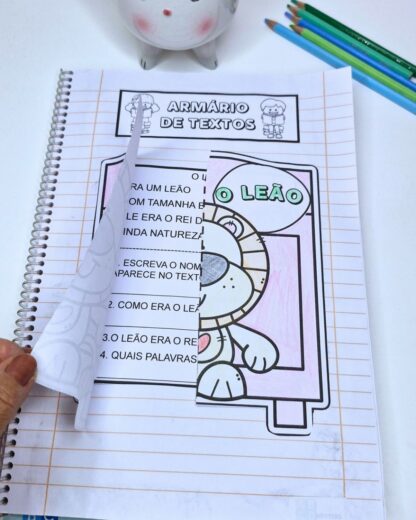 ARMÁRIO
DE TEXTOS
O LEÃO
O L
ERA UM LEÃO
OM TAMANHA B
LE ERA O REI D
INDA NATUREZA
. ESCREVA O NOM
APARECE NO TEXT
2. COMO ERA O LEÃ
3.O LEÃO ERA O RE
4. QUAIS PALAVRAS